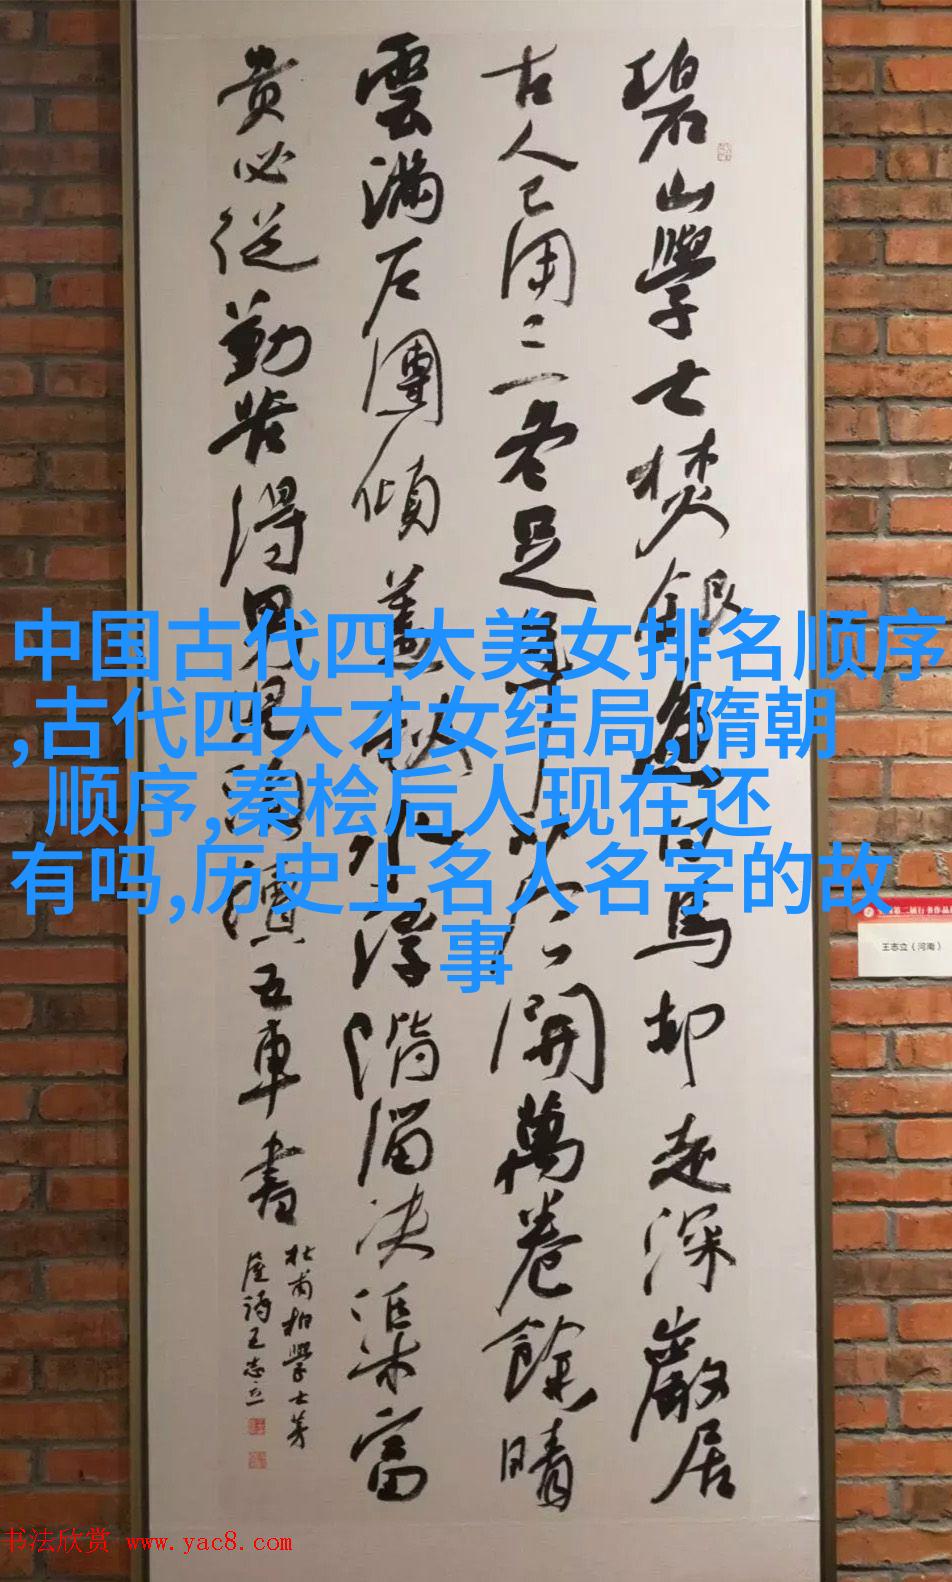 碧山學士焚銀魚白馬却走深巖居
古人已用三冬足年少今開萬卷餘晴
雲滿户團傾蓋秋水浮階溜决渠富
貴必從勤苦得男兒須讀五車書
杜甫柏學士茅
屋詩王志立
中国古代四大美女排名顺序
,古代四大才女结局,隋朝
顺序,秦桧后人现在还
有吗,历史上名人名字的故
事
第二届行书作品
王志立（河南）
书法欣赏 www.yac8.com